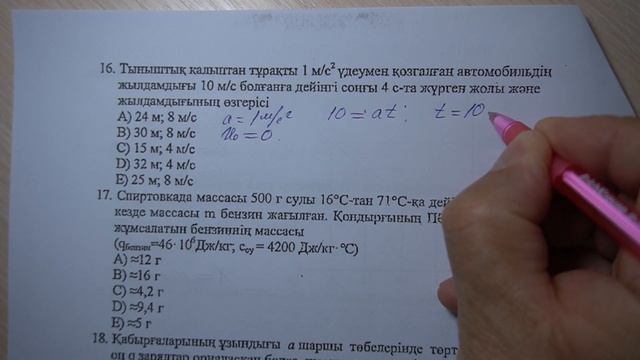 16. Тыныштық калыптан тұрақты 1 м/с² үдеумен қозғалған автомобильдің
жылдамдығы 10 м/с болғанға дейінгі соңғы 4 с-та жүрген жолы және
жылдамдығының өзгерісі
A) 24 м; 8 м/с a = 1 м/с² 10 = at; t = 10
B) 30 м; 8 м/с v₀ = 0.
C) 15 м; 4 м/с
D) 32 м; 4 м/с
E) 25 м; 8 м/с
17. Спиртовкада массасы 500 г сулы 16°C-тан 71°C-қа
кезде массасы m бензин жағылған. Қондырғының
жұмсалатын бензиннің массасы
(qбензин=46· 10⁶Дж/кг, cсу = 4200 Дж/кг· °C)
A) ≈12 г
B) ≈16 г
C) ≈4,2 г
D) ≈9,4 г
E) ≈5 г
18. Қабырғаларының ұзындығы a шаршы төбелерінде